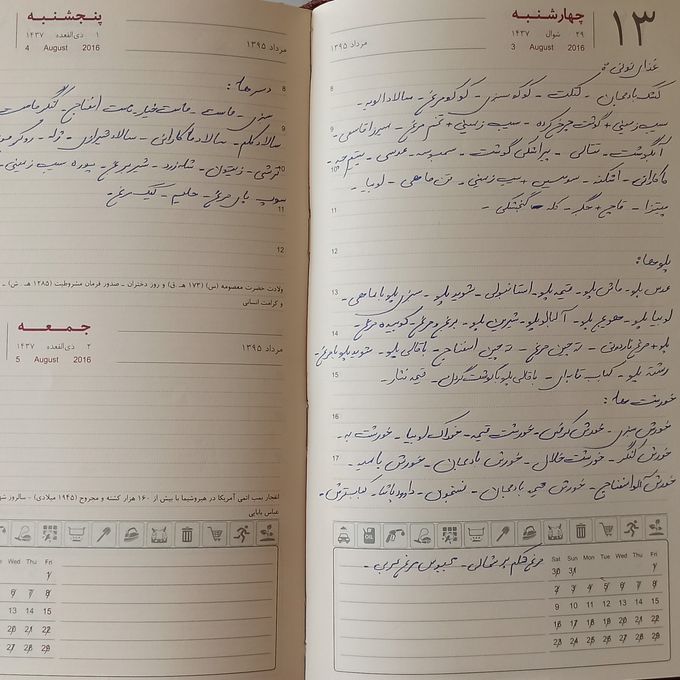 ۱۳
چهارشنبه
۲۹ شوال ۱۴۳۷
3 August 2016
مرداد ۱۳۹۵
غذای نونی:
8
کشک بادمجان - کتلت - کوکو سبزی - کوکو مرغ - سالاد الویه -
9
سیب زمینی + گوشت چرخ کرده - سیب زمینی + تخم مرغ - میرزا قاسمی -
10
آبگوشت - متالی - پیراشکی گوشت - سمبوسه - عدسی - یتیمچه -
ماکارانی - اشکنه - سوسیس + سیب زمینی - تن ماهی - لوبیا -
11
پیتزا - قارچ + جگر - کله گنجشکی -
12
پلوها:
13
عدس پلو - ماش پلو - قیمه پلو - استانبولی - شوید پلو - سبزی پلو با ماهی -
لوبیا پلو - هویج پلو - آلبالو پلو - شیرین پلو - برنج و مرغ - کوبیده مرغ -
14
پلو + مرغ - ته چین مرغ - ته چین اسفناج - باقالی پلو - شوید پلو با مرغ -
15
رشته پلو - کباب تابه‌ای - باقالی پلو با گوشت گردن - قیمه نثار -
خورشت ها:
16
خورش سبزی - خورش کرفس - خورشت قیمه - خوراک لوبیا - خورشت به -
17
خورش کنگر - خورشت خلال - خورش بادمجان - خورش بامیه -
خورش آلو اسفناج - خورش قیمه بادمجان - فسنجون - داوود پاشا -
OIL
مرغ شکم پر شمالی -
Sat Sun Mon Tue Wed Thu Fri
30 31 1
2 3 4 5 6 7 8
9 10 11 12 13 14 15
16 17 18 19 20 21 22
23 24 25 26 27 28 29
پنجشنبه
۱ ذی‌القعده ۱۴۳۷
4 August 2016
مرداد ۱۳۹۵
8
دسرها:
سبزی - ماست - ماست خیار - ماست اسفناج -
9
سالاد کلم - سالاد ماکارانی - سالاد شیرازی - ژله -
10
ترشی - زیتون - شله زرد - شیر برنج - پوره سیب زمینی -
سوپ پای مرغ - حلیم - کیک مرغ -
11
12
ولادت حضرت معصومه (س) (۱۷۳ هـ. ق) و روز دختران - صدور فرمان مشروطیت (۱۲۸۵ هـ. ش) -
و کرامت انسانی
جمعه
۲ ذی‌القعده ۱۴۳۷
5 August 2016
مرداد ۱۳۹۵
انفجار بمب اتمی آمریکا در هیروشیما با بیش از ۱۶۰ هزار کشته و مجروح (۱۹۴۵ میلادی) - سالروز
عباس بابایی
Wed Thu Fri
1
6 7 8
13 14 15
20 21 22
27 28 29